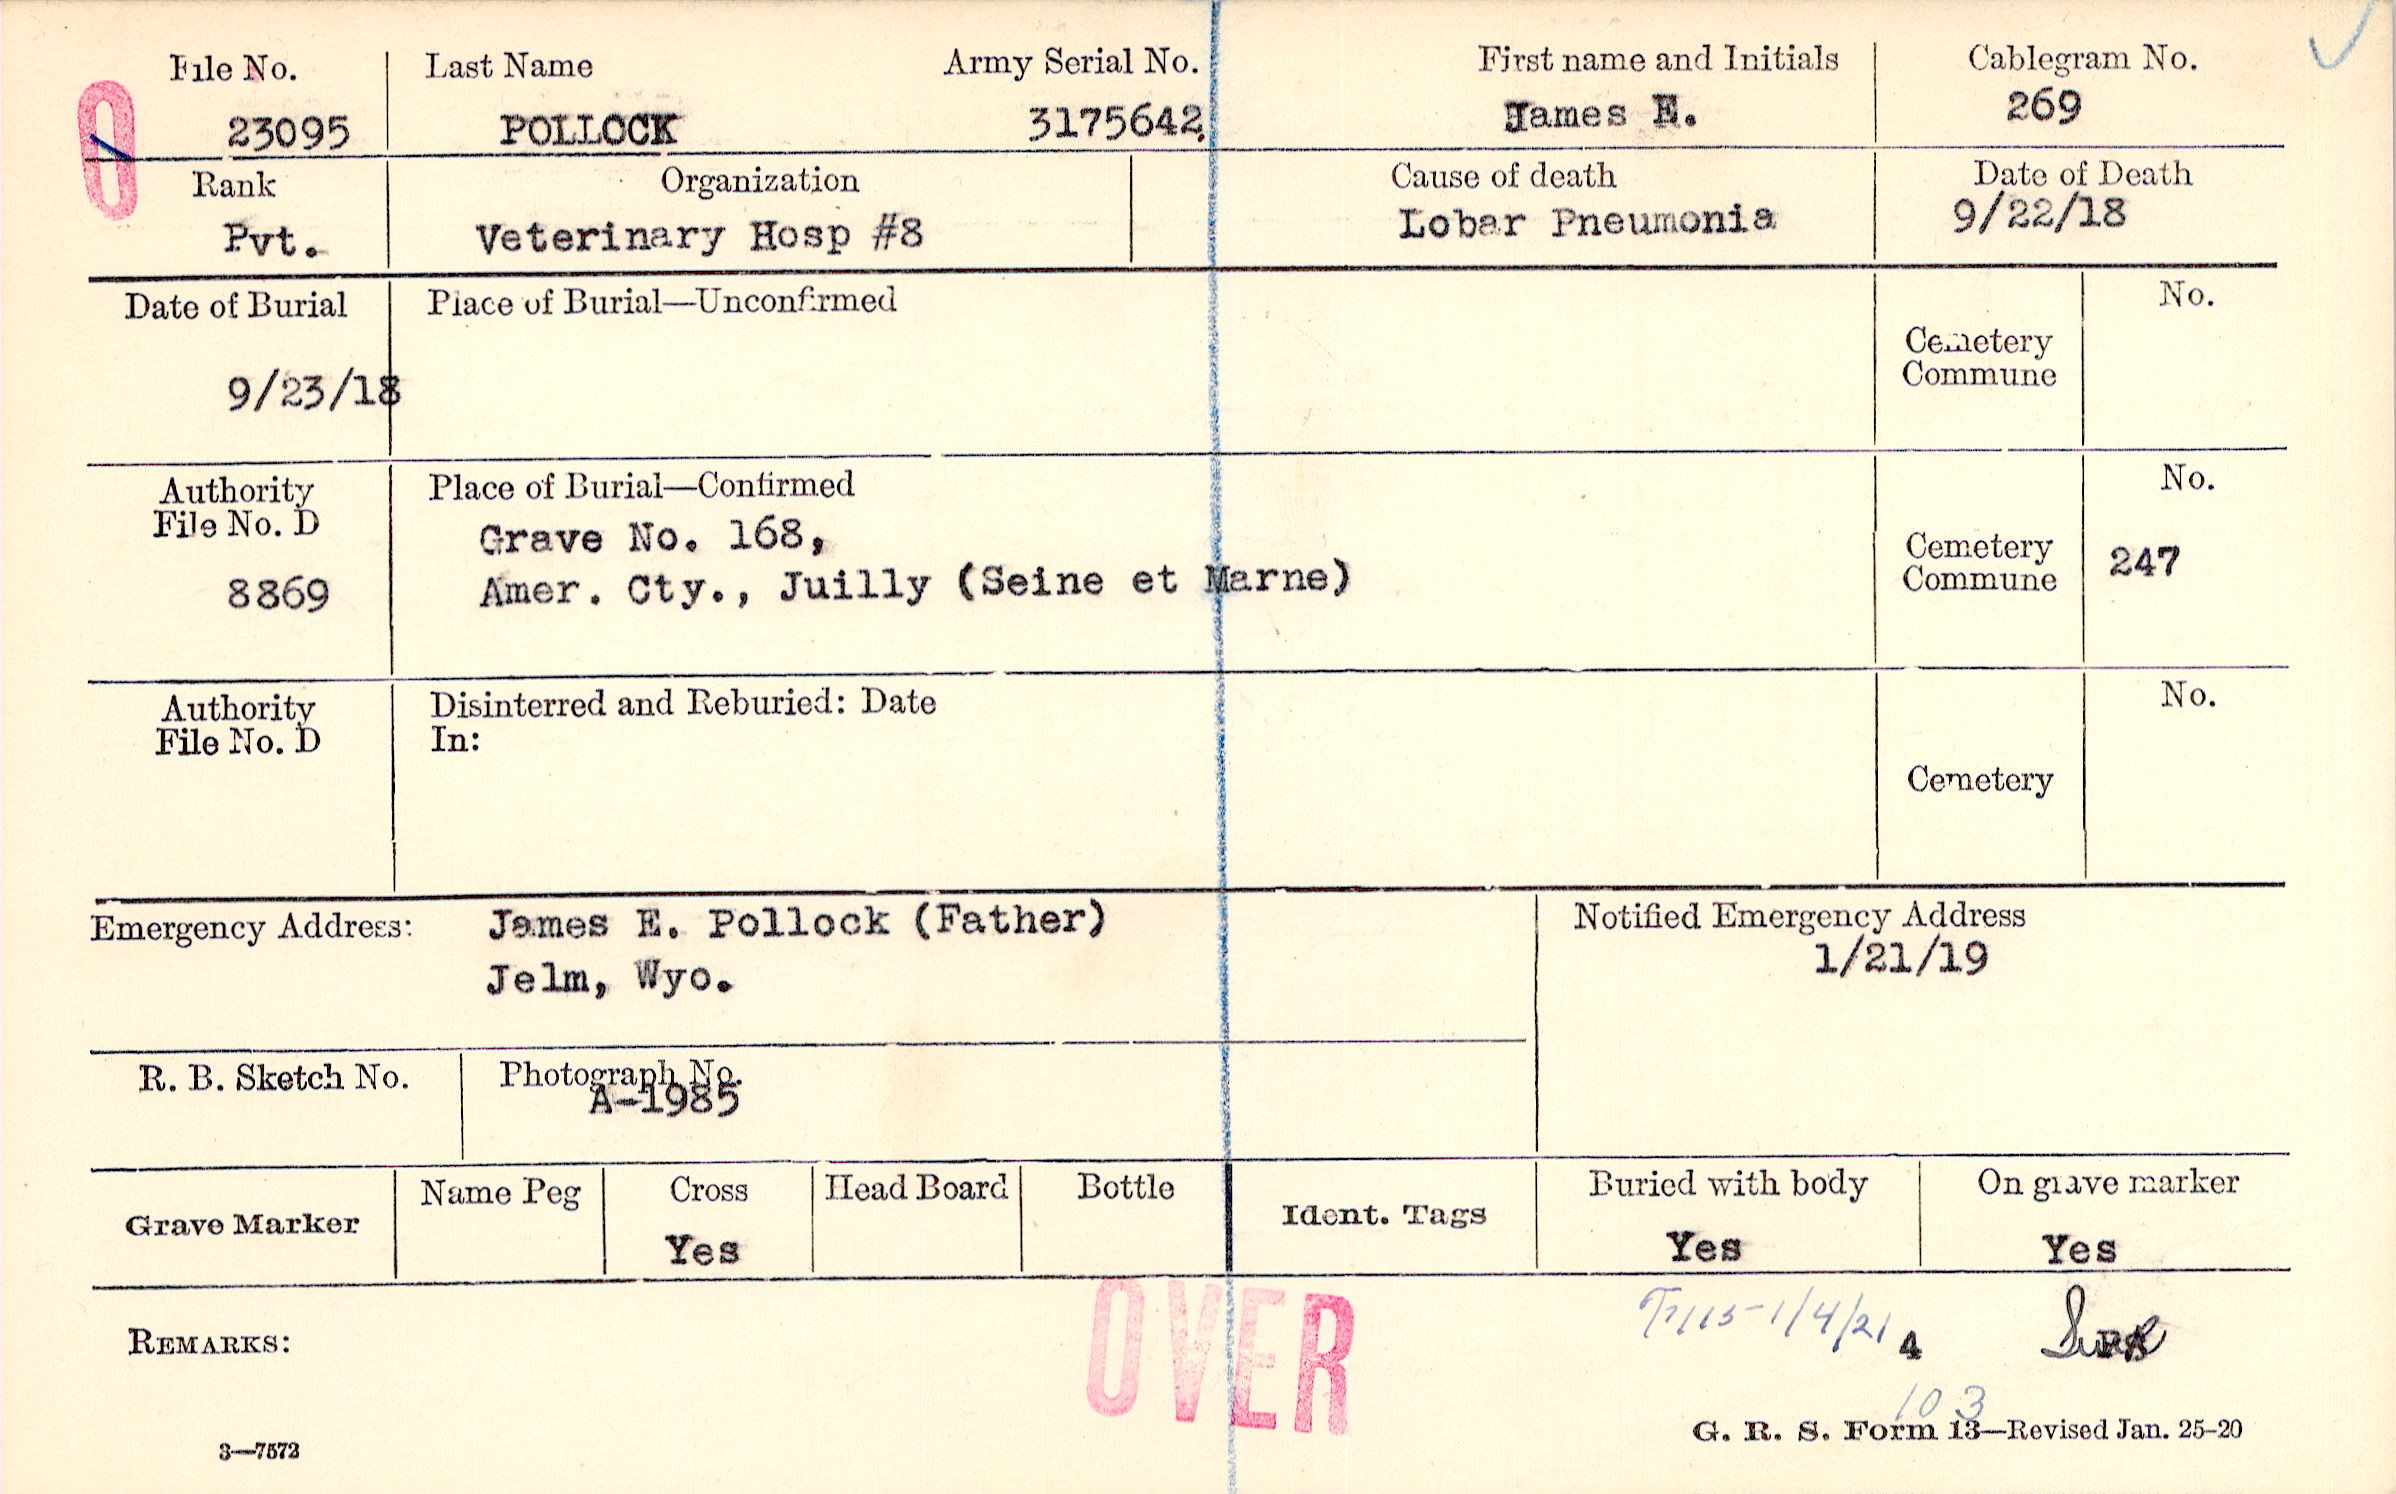 File No.
Last Name
Army Serial No.
First name and Initials
Cablegram No.
0
23095
POLLOCK
3175642.
James E.
269
Rank
Organization
Cause of death
Date of Death
Pvt.
Veterinary Hosp #8
Lobar Pneumonia
9/22/18
Date of Burial
Place of Burial—Unconfirmed
Cemetery
Commune
No.
9/23/18
Authority
File No. D
Place of Burial—Confirmed
Cemetery
Commune
No.
8869
Grave No. 168,
Amer. Cty., Juilly (Seine et Marne)
247
Authority
File No. D
Disinterred and Reburied: Date
In:
Cemetery
No.
Emergency Address:
James E. Pollock (Father)
Jelm, Wyo.
Notified Emergency Address
1/21/19
R. B. Sketch No.
Photograph No.
A-1985
Grave Marker
Name Peg
Cross
Head Board
Bottle
Ident. Tags
Buried with body
On grave marker
Yes
Yes
Yes
OVER
REMARKS:
1/4/21
4
103
3—7572
G. R. S. Form 13—Revised Jan. 25-20